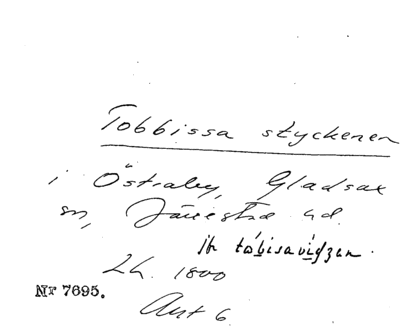 Tobbissa styckenen
i Östraby, Gladsax
sn, Järrestad hd.
ih tobisavidzen.
Lh. 1800
Nr 7695.
Akt 6